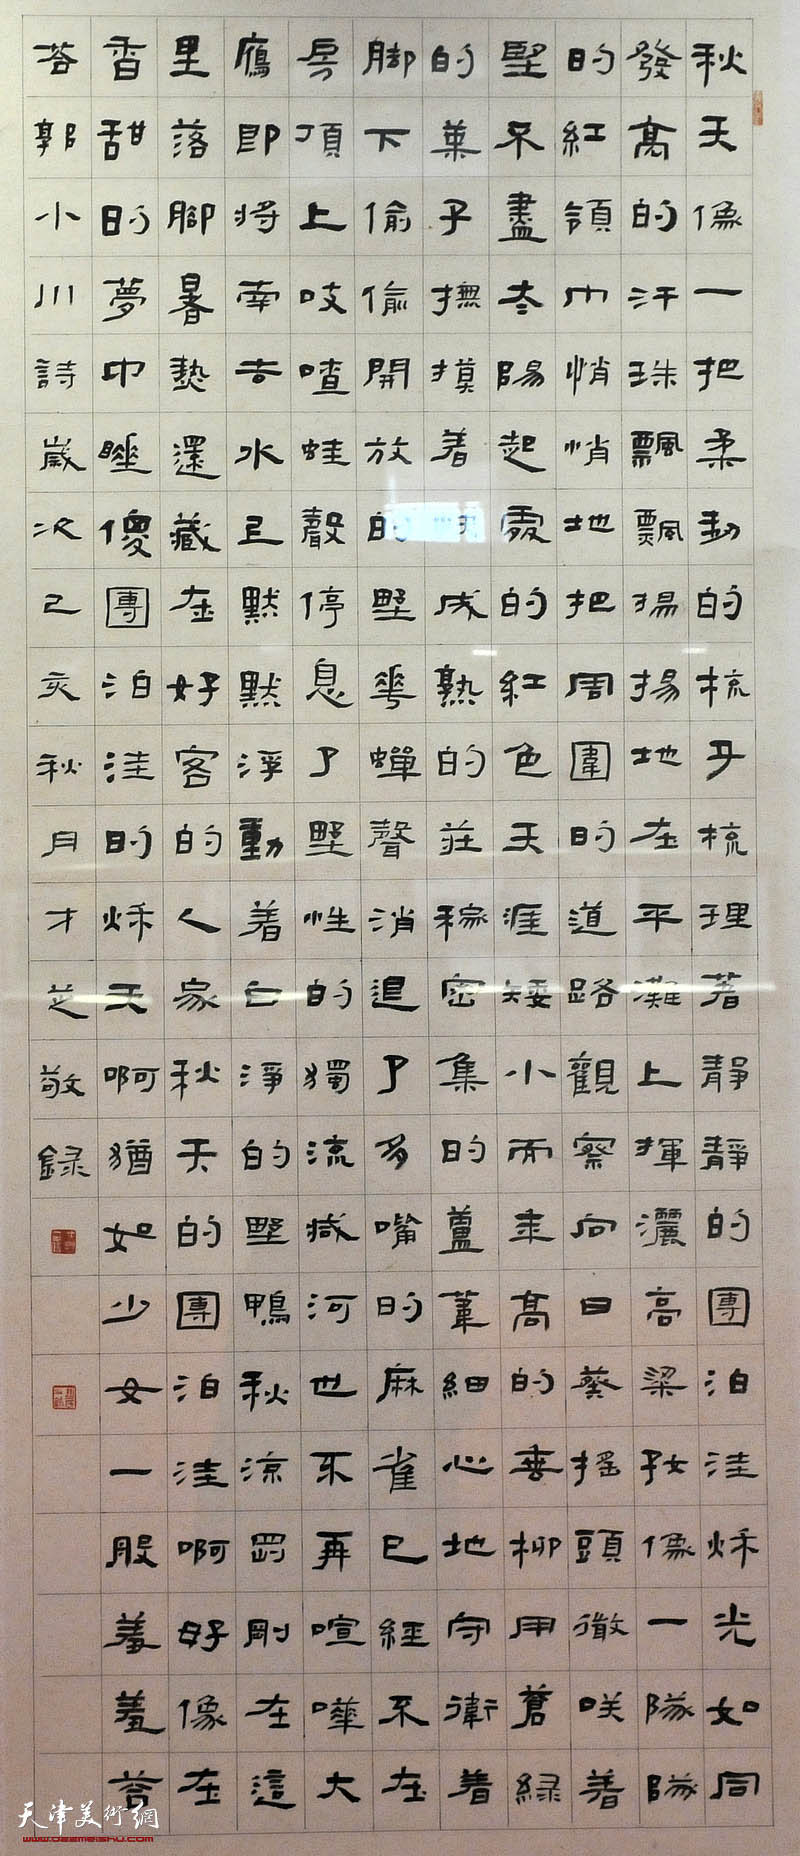 秋天像一把柔韌的梳子梳理著靜靜的團泊洼秌光如同
發亮的汗珠飄飄揚揚地在平灘上揮灑高粱好像一隊隊
的紅領巾悄悄地把周圍的道路觀察向日葵搖頭微咲着
望不盡太陽起處的紅色天涯矮小而年高的垂柳用蒼綠
的葉子撫摸着成熟的莊稼密集的蘆葦細心地守衛着
脚下偷偷開放的野花蟬聲消退了多嘴的麻雀已經不在
房頂上吱喳蛙聲停息了野性的獨流減河也不再喧嘩大
鴈即將南去水上默默浮動着白淨的野鴨秋涼剛剛在這
里落腳暑熱還藏在好客的人家秋天的團泊洼啊好像在
香甜的夢中睡傻團泊洼的秌天啊猶如少女一般羞羞荅
荅郭小川詩歲次己亥秋月才芝敬錄
天津美術網
www.022meishu.com